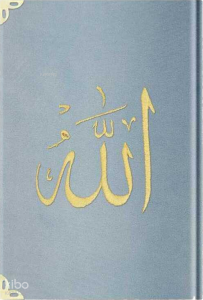 الله
hibo